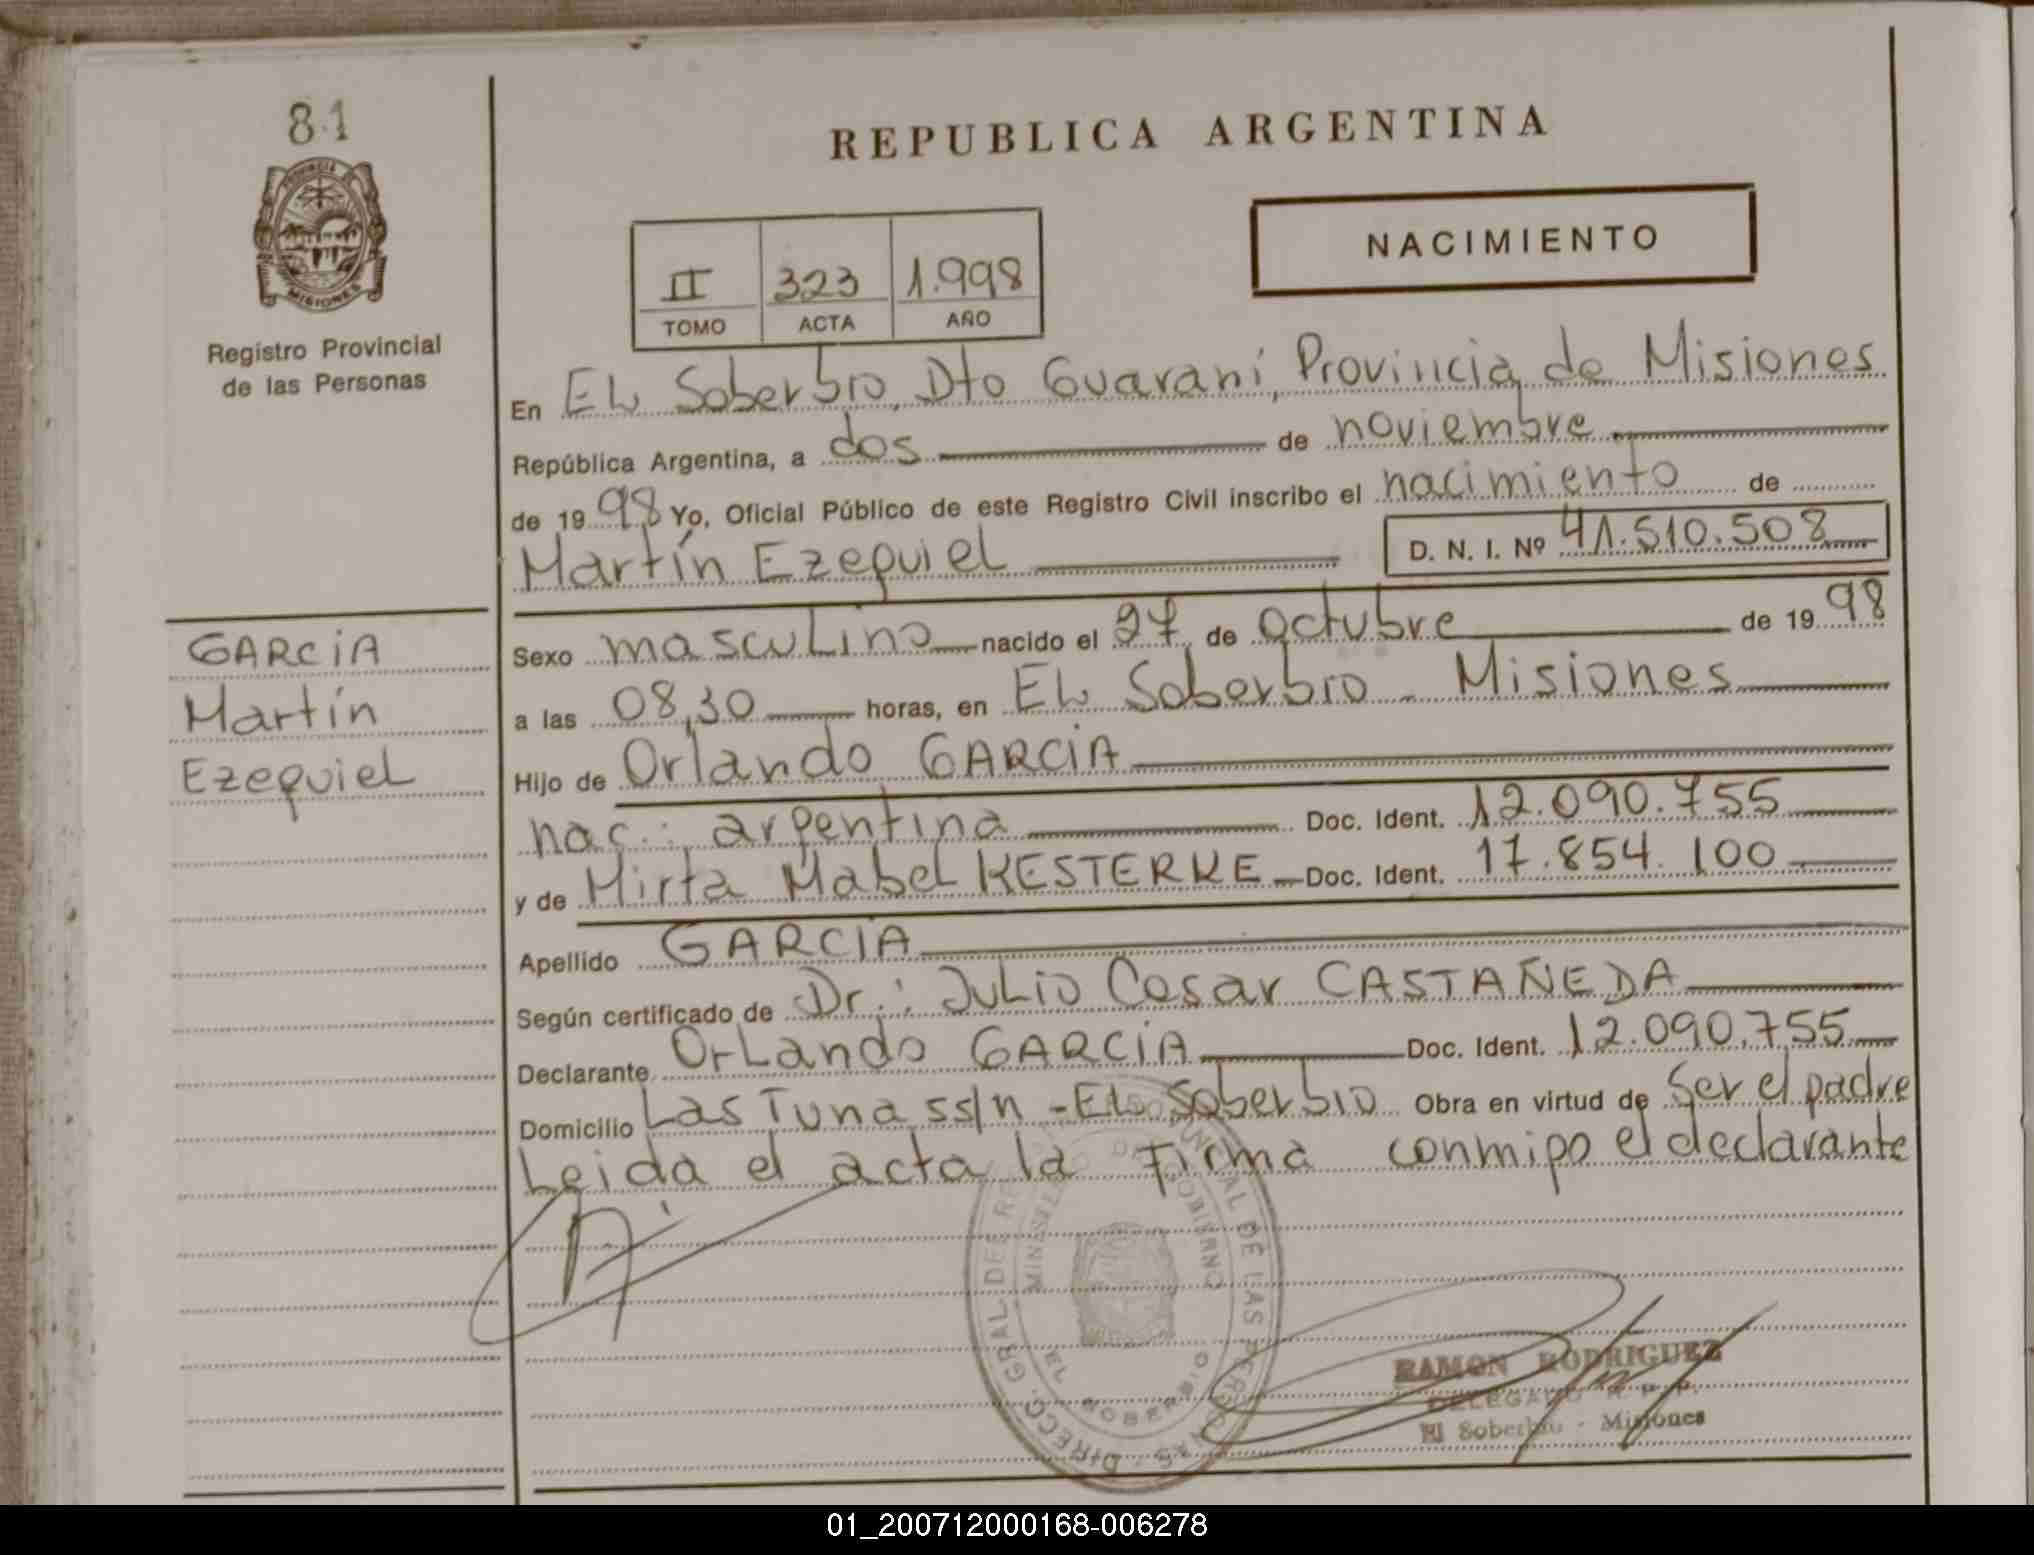 81
PROVINCIA DE
MISIONES
Registro Provincial
de las Personas
GARCIA
Martín
Ezequiel
REPUBLICA ARGENTINA
NACIMIENTO
II 323 1.998
TOMO ACTA AÑO
En EL Soberbio, Dto Guaraní, Provincia de Misiones
República Argentina, a dos de noviembre
de 1998 Yo, Oficial Público de este Registro Civil inscribo el nacimiento de
Martín Ezequiel D. N. I. Nº 41.510.508
Sexo masculino nacido el 27 de octubre de 1998
a las 08,30 horas, en EL Soberbio - Misiones
Hijo de Orlando GARCIA
nac.: argentina Doc. Ident. 12.090.755
y de Mirta Mabel KESTERKE Doc. Ident. 17.854.100
Apellido GARCIA
Según certificado de Dr.: Julio Cesar CASTAÑEDA
Declarante OrLando GARCIA Doc. Ident. 12.090.755
Domicilio Las Tunas s/n - EL Soberbio Obra en virtud de Ser el padre
Leida el acta la Firma conmigo el declarante
DIRECC. GRAL. DE
DE LAS PERSONAS
DE GOBIERNO
EL SOBERBIO
RAMON RODRIGUEZ
DELEGADO R. P. P.
El Soberbio - Misiones
01_200712000168-006278